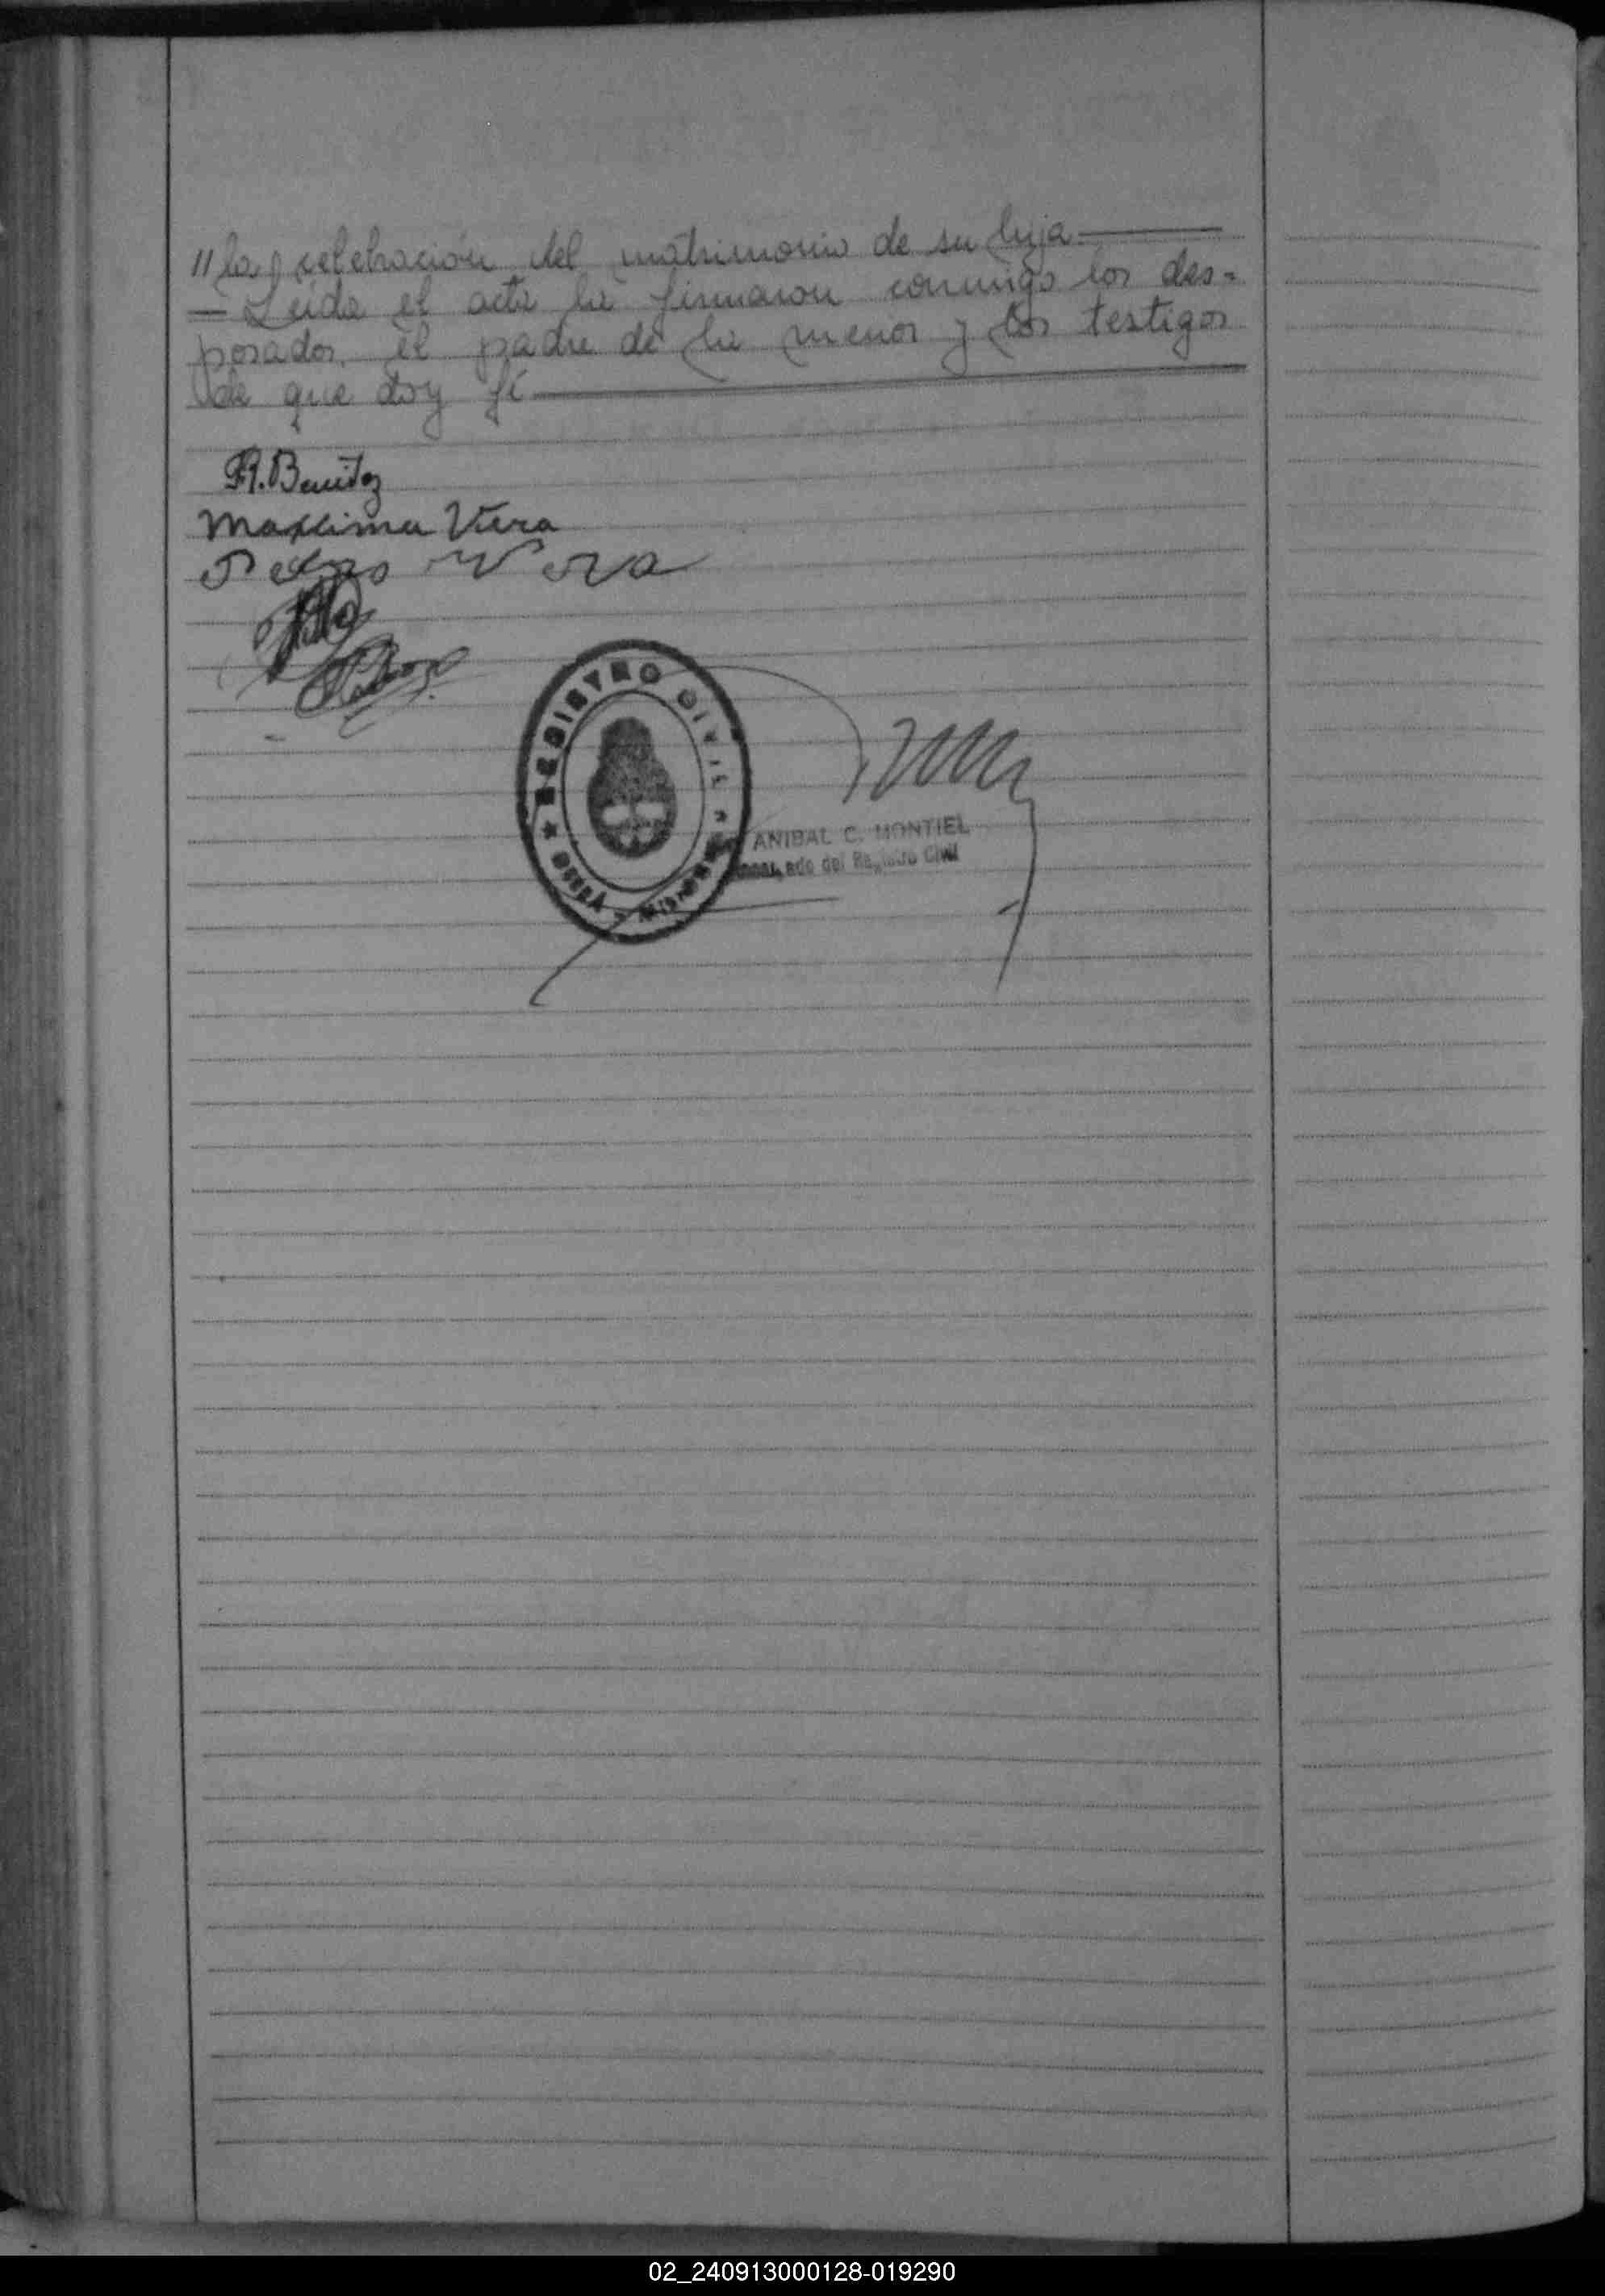 "la celebración del matrimonio de su hija
— Leida el acta la firmaron conmigo los des=
posados, el padre de la menor y los testigos
de que doy fé
R. Benitez
Maxima Viera
Pedro Vera
REGISTRO CIVIL
ANIBAL C. MONTIEL
del Registro Civil
02_240913000128-019290